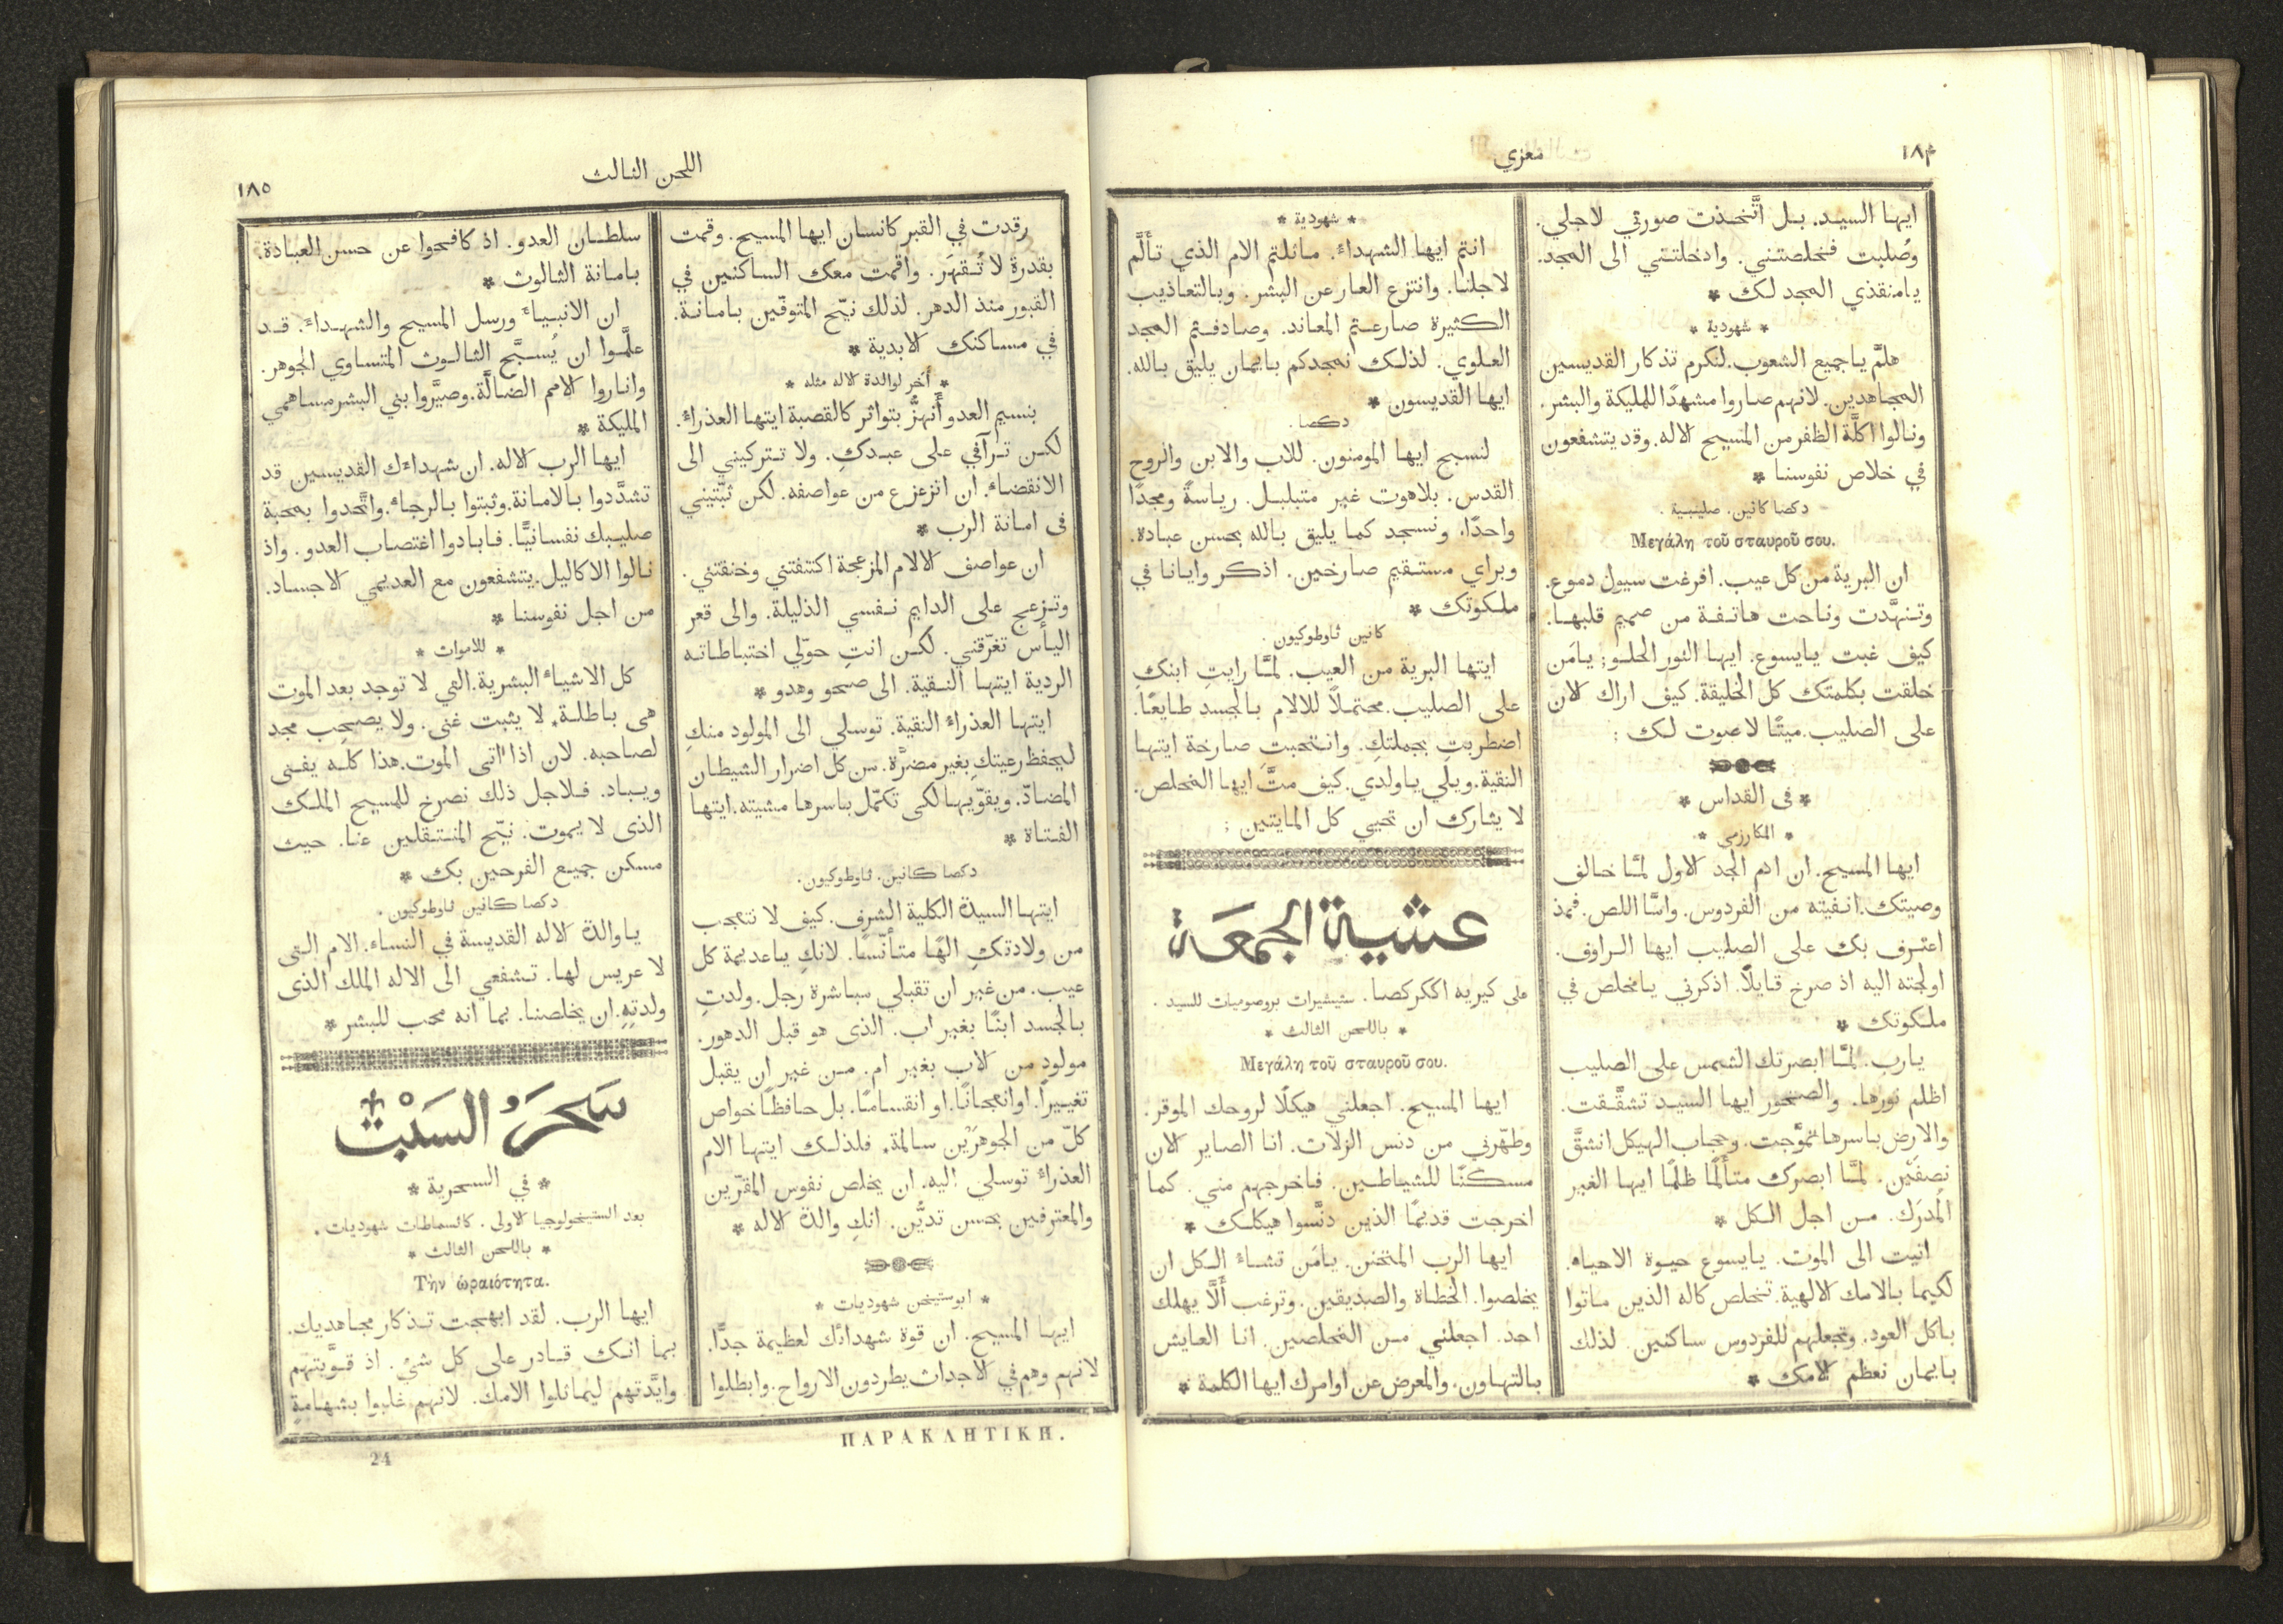 ١٨٤
معزي
ايها السيد. بل اتَّخذت صورتي لاجلي.
وصُلبت فخلصتني. وادخلتني الى المجد.
يامنقذي المجد لك *
* شهودية *
هلمَّ ياجميع الشعوب. لنكرم تذكار القديسين
المجاهدين. لانهم صاروا مشهدًا للمليكة والبشر.
ونالوا اكلَّة الظفر من المسيح الاله. وقد يتشفعون
في خلاص نفوسنا *
دكصا كانين. صليبية.
Μεγάλη τοῦ σταυροῦ σου.
ان البرية من كل عيب. افرغت سيول دموع.
وتنهَّدت وناحت هاتفة من صميم قلبها.
كيف غبت يايسوع. ايها النور الحلو; يامَن
خلقت بكلمتك كل الخليقة. كيف اراك الان
على الصليب. ميتًا لا صوت لك ;
* في القداس *
* المكارزمي *
ايها المسيح. ان ادم الجد الاول لمَّا خالف
وصيتك. انفيته من الفردوس. وامَّا اللص. فمذ
اعترف بك على الصليب ايها الراوف.
اولجته اليه اذ صرخ قايلًا. اذكرني يامخلص في
ملكوتك *
يارب. لمَّا ابصرتك الشمس على الصليب
اظلم نورها. والصخور ايها السيد تشقَّقت.
والارض باسرها تموَّجت. وحجاب الهيكل انشقَّ
نصفَيْن. لمَّا ابصرك متألمًا ظلمًا ايها الغير
المُدرَك. من اجل الكل *
اتيت الى الموت. يايسوع حيوة الاحياه.
لكيما بالامك الالهية. تخلص كاله الذين ماتوا
باكل العود. وتجعلهم للفردوس ساكنين. لذلك
بايمان نعظم الامك *
* شهودية *
انتم ايها الشهداء. ماثلتم الام الذي تألَّم
لاجلنا. وانتزع العار عن البشر. وبالتعاذيب
الكثيرة صارعتم المعاند. وصادفتم المجد
العلوي. لذلك نمجدكم بايمان يليق بالله.
ايها القديسون *
دكصا.
لنسبح ايها المومنون. للاب والابن والروح
القدس. بلاهوت غير متبلبل. رياسةً ومجدًا
واحدًا. ونسجد كما يليق بالله بحسن عبادة.
وبراي مستقيم صارخين. اذكر وايانا في
ملكوتك *
كانين ثاوطوكيون.
ايتها البرية من العيب. لمَّا رايتِ ابنكِ
على الصليب. محتملًا للالام بالجسد طايعًا.
اضطربتِ بجملتكِ. وانتحبتِ صارخة ايتها
النقية. ويلي ياولدي. كيف متَّ ايها المخلص.
لا يثارك ان تحيي كل المايتين ;
عشية الجمعة
على كيريه اككركصا. ستيشيرات بروصوميات للسيد.
* باللحن الثالث *
Μεγάλη τοῦ σταυροῦ σου.
ايها المسيح. اجعلني هيكلًا لروحك الموقر.
وطهّرني من دنس الزلات. انا الصاير الان
مسكنًا للشياطين. فاخرجهم مني. كما
اخرجت قديمًا الذين دنَّسوا هيكلك *
ايها الرب المتحنن. يامَن تشاء الكل ان
يخلصوا. الخطاة والصديقين. وترغب ألَّا يهلك
احد. اجعلني من المخلصين. انا العايش
بالتهاون. والمعرض عن اوامرك ايها الكلمة *
اللحن الثالث
١٨٥
رقدت في القبر كانسان ايها المسيح. وقمت
بقدرة لا تُقهَر. واقمت معك الساكنين في
القبور منذ الدهر. لذلك نيّح المتوفّين بامانة.
في مساكنك الابدية *
* أُخر لوالدة الاله مثله *
بنسيم العدو أنهزُّ بتواتر كالقصبة ايتها العذراء.
لكن ترآفي على عبدكِ. ولا تتركيني الى
الانقضاء. ان اتزعزع من عواصفه. لكن ثبّتيني
في امانة الرب *
ان عواصف الالام المزعجة اكتنفتني وخنقتني.
وتزعج على الدايم نفسي الذليلة. والى قعر
اليأس تغرّقني. لكن انتِ حوّلي اختباطاته
الردية ايتها النقية. الى صحو وهدو *
ايتها العذراء النقية. توسلي الى المولود منكِ
ليحفظ رعيتكِ بغير مضرَّة. من كل اضرار الشيطان
المضادّ. ويقوّيها لكى تكمّل باسرها مشيته. ايتها
الفتاة *
دكصا كانين. ثاوطوكيون.
ايتها السيدة الكلية الشرف. كيف لا نتعجب
من ولادتكِ الهًا متأنّسًا. لانكِ ياعديمة كل
عيب. من غير ان تقبلي مباشرة رجل. ولدتِ
بالجسد ابنًا بغير اب. الذى هو قبل الدهور.
مولود من الاب بغير ام. من غير ان يقبل
تغييراً. اوانعجانًا. او انقسامًا. بل حافظًا خواص
كلّ من الجوهرَيْن سالمة. فلذلك ايتها الام
العذراء توسلي اليه. ان يخلص نفوس المقرّين
والمعترفين بحسن تديُّن. انكِ والدة الاله *
* ابوستيخن شهوديات *
ايها المسيح. ان قوة شهدائك لعظيمة جدًّا.
لانهم وهم في الاجداث يطردون الارواح. وابطلوا
سلطان العدو. اذ كافحوا عن حسن العبادة.
بامانة الثالوث *
ان الانبياء ورسل المسيح والشهداء. قد
علَّموا ان يُسبَّح الثالوث المتساوي الجوهر.
واناروا الامم الضالَّة. وصيَّروا بني البشر مساهمي
المليكة *
ايها الرب الاله. ان شهداءك القديسين قد
تشدَّدوا بالامانة. وثبتوا بالرجاء. واتَّحدوا بمحبة
صليبك نفسانيًّا. فابادوا اغتصاب العدو. واذ
نالوا الاكاليل. يتشفعون مع العديمي الاجساد.
من اجل نفوسنا *
* للاموات *
كل الاشياء البشرية. التي لا توجد بعد الموت
هى باطلة. لا يثبت غنى. ولا يصحب مجد
لصاحبه. لان اذا اتى الموت. هذا كله يفنى
ويباد. فلاجل ذلك نصرخ للمسيح الملك
الذى لا يموت. نيّح المنتقلين عنا. حيث
مسكن جميع الفرحين بك *
دكصا كانين ثاوطوكيون.
ياوالدة الاله القديسة في النساء. الام التى
لا عريس لها. تشفعي الى الاله الملك الذى
ولدتِهِ. ان يخلصنا. بما انه محب للبشر *
سَحَرُ السَبْت
* في السحرية *
بعد الستيخولوجيا الاولى. كاثسماطات شهوديات.
* باللحن الثالث *
Τὴν ὡραιότητα.
ايها الرب. لقد ابهجت تذكار مجاهديك.
بما انك قادر على كل شي. اذ قوَّيتهم
وايَّدتهم ليماثلوا الامك. لانهم غلبوا بشهامةٍ
ΠΑΡΑΚΛΗΤΙΚΗ.
24